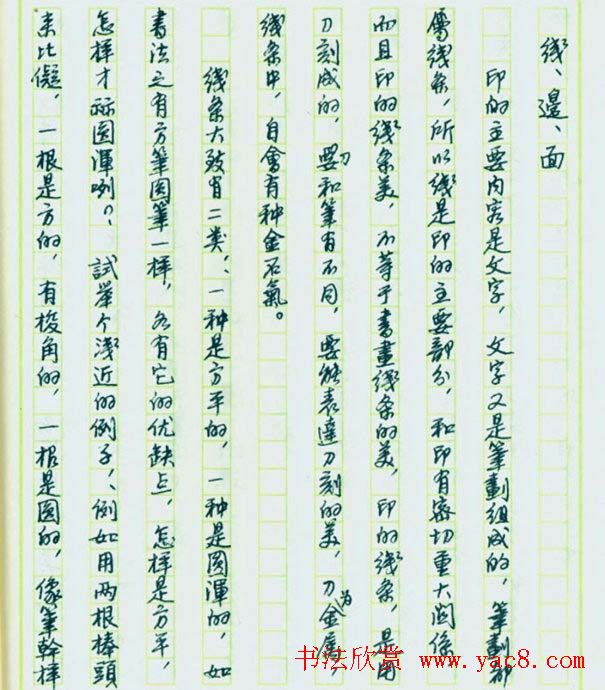 线、邊、面
印的主要内容是文字，文字又是筆劃組成的，筆劃都
屬线条，所以线是印的主要部分，和印有密切重大関係
而且印的线条美，不等于書畫线条的美，印的线条，是用
刀刻成的，刀和筆有不同，要能表達刀刻的美，刀為金属，
线条中，自會有种金石氣。
线条大致有二类，一种是方平的，一种是圆渾的，如
書法之有方筆圆筆一样，各有它的优缺点，怎样是方平，
怎样才称圆渾咧？試举个浅近的例子，例如用两根棒頭
来比儗，一根是方的，有棱角的，一根是圆的，像筆幹样
书法欣赏 www.yac8.com